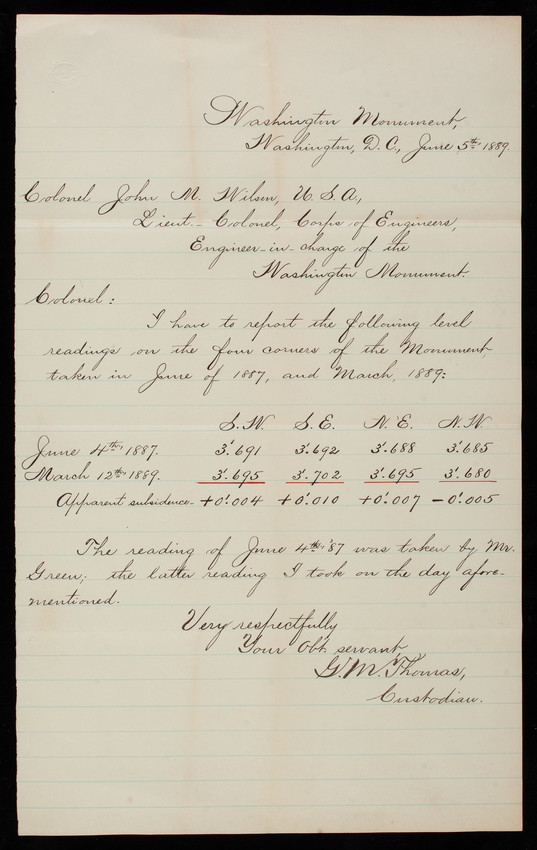 Washington Monument,
Washington, D.C., June 5th 1889.
Colonel John M. Wilson, U.S.A.,
Lieut.-Colonel, Corps of Engineers,
Engineer-in-charge of the
Washington Monument.
Colonel:
I have to report the following level
readings on the four corners of the Monument,
taken in June of 1887, and March, 1889:
S.W. S.E. N.E. N.W.
June 4th, 1887. 3'.691 3'.692 3'.688 3'.685
March 12th, 1889. 3'.695 3'.702 3'.695 3'.680
Apparent subsidence - +0'.004 +0'.010 +0'.007 -0'.005
The reading of June 4th, '87 was taken by Mr.
Green; the latter reading I took on the day afore-
mentioned.
Very respectfully
Your obt. servant,
G. M. Thomas,
Custodian.